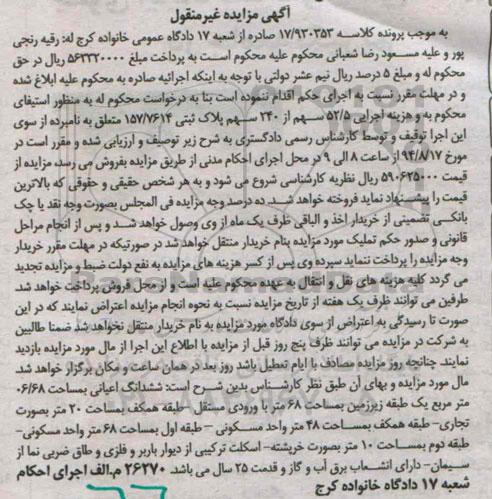 آگهی مزایده غیرمنقول
به موجب پرونده کلاسه ۱۷/۹۳۰۳۵۳ صادره از شعبه ۱۷ دادگاه عمومی خانواده کرج له: رقیه رنجی
پور و علیه مسعود رضا شعبانی محکوم علیه محکوم است به پرداخت مبلغ ۵۶۲۳۲۰۰۰۰ ریال در حق
محکوم له و مبلغ ۵ درصد ریال نیم عشر دولتی با توجه به اینکه اجرائیه صادره به محکوم علیه ابلاغ شده
و در مهلت مقرر نسبت به اجرای حکم اقدام ننموده است بنا به درخواست محکوم له به منظور استیفای
محکوم به و هزینه اجرایی ۵۲/۵ سهم از ۲۴۰ سهم پلاک ثبتی ۱۵۷/۷۶۱۴ متعلق به نامبرده از سوی
این اجرا توقیف و توسط کارشناس رسمی دادگستری به شرح زیر توصیف و ارزیابی شده و مقرر است در
مورخ ۹۴/۸/۱۷ از ساعت ۸ الی ۹ در محل اجرای احکام مدنی از طریق مزایده بفروش می رسد، مزایده از
قیمت ۵۹۰۶۲۵۰۰۰ ریال نظریه کارشناسی شروع می شود و به هر شخص حقیقی و حقوقی که بالاترین
قیمت را پیشنهاد نماید فروخته خواهد شد. ده درصد وجه مزایده فی المجلس بصورت وجه نقد یا چک
بانکی تضمینی از خریدار اخذ و الباقی ظرف یک ماه از وی وصول خواهد شد و پس از انجام مراحل
قانونی و صدور حکم تملیک مورد مزایده بنام خریدار منتقل خواهد شد در صورتیکه در مهلت مقرر خریدار
وجه مزایده را پرداخت ننماید سپرده وی پس از کسر هزینه های مزایده به نفع دولت ضبط و مزایده تجدید
می گردد کلیه هزینه های نقل و انتقال به عهده محکوم علیه است و از محل فروش پرداخت خواهد شد
طرفین می توانند ظرف یک هفته از تاریخ مزایده نسبت به نحوه انجام مزایده اعتراض نمایند که در این
صورت تا رسیدگی به اعتراض از سوی دادگاه مورد مزایده به نام خریدار منتقل نخواهد شد ضمنا طالبین
به شرکت در مزایده می توانند ظرف پنج روز قبل از مزایده با اطلاع این اجرا از مال مورد مزایده بازدید
نمایند. چنانچه روز مزایده مصادف با ایام تعطیل باشد روز بعد در همان ساعت و مکان برگزار خواهد شد.
مال مورد مزایده و بهای آن طبق نظر کارشناس بدین شرح است: ششدانگ اعیانی بمساحت ۰۶/۶۸
متر مربع یک طبقه زیرزمین بمساحت ۶۸ متر با ورودی مستقل – طبقه همکف بمساحت ۲۰ متر بصورت
تجاری- طبقه همکف بمساحت ۴۸ متر واحد مسکونی – طبقه اول بمساحت ۶۸ متر واحد مسکونی-
طبقه دوم بمساحت ۱۰ متر بصورت خرپشته- اسکلت ترکیبی از دیوار باربر و فلزی و طاق ضربی نما از
سیمان- دارای انشعاب برق آب و گاز و قدمت ۲۵ سال می باشد. ۲۶۲۷۰ م.الف اجرای احکام
شعبه ۱۷ دادگاه خانواده کرج